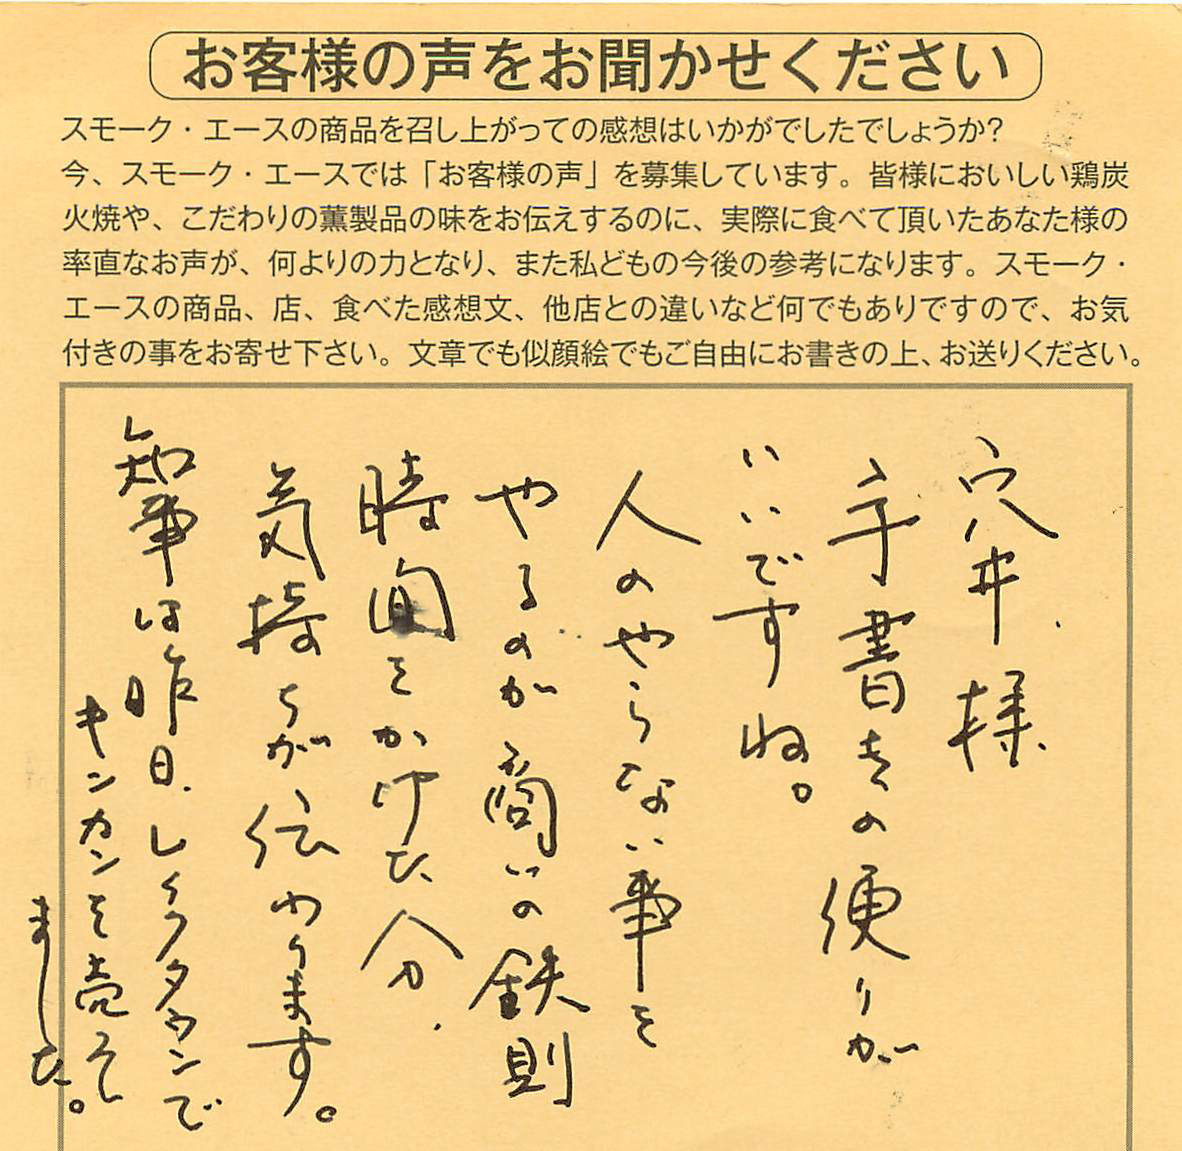 お客様の声をお聞かせください
スモーク・エースの商品を召し上がっての感想はいかがでしたでしょうか?
今、スモーク・エースでは「お客様の声」を募集しています。皆様においしい鶏炭
火焼や、こだわりの薫製品の味をお伝えするのに、実際に食べて頂いたあなた様の
率直なお声が、何よりの力となり、また私どもの今後の参考になります。スモーク・
エースの商品、店、食べた感想文、他店との違いなど何でもありですので、お気
付きの事をお寄せ下さい。文章でも似顔絵でもご自由にお書きの上、お送りください。
穴井様
手書きの便りが
いいですね。
人のやらない事を
やるのが商いの鉄則
時間をかけた分、
気持ちが伝わります。
知事は昨日、レイクタウンで
キンカンを売ってい
ました。